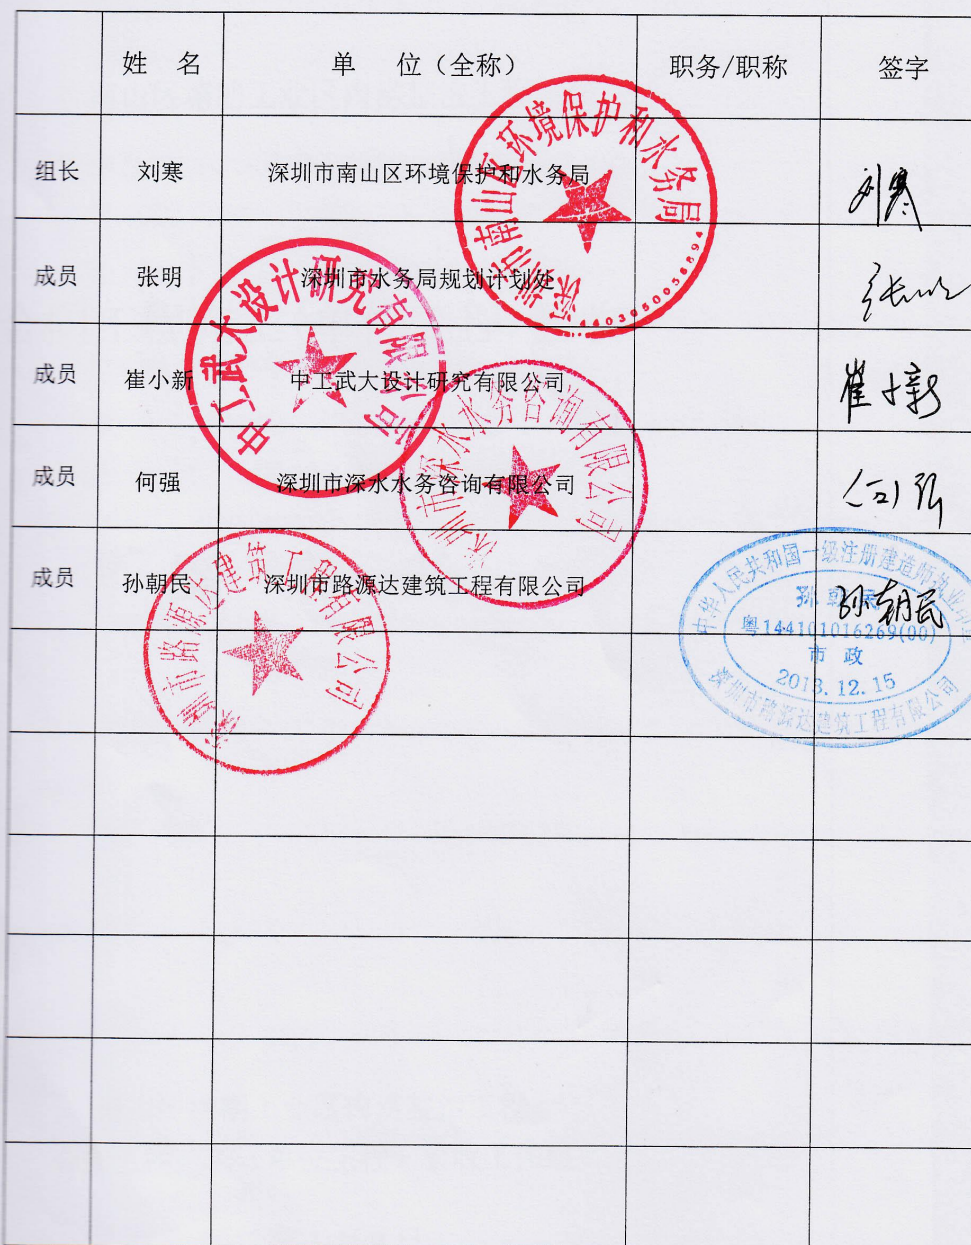 姓 名 单 位（全称） 职务/职称 签字
组长 刘寒 深圳市南山区环境保护和水务局 刘寒
成员 张明 深圳市水务局规划计划处 张明
成员 崔小新 中工武大设计研究有限公司 崔小新
成员 何强 深圳市深水水务咨询有限公司 何强
成员 孙朝民 深圳市路源达建筑工程有限公司 孙朝民
深圳市南山区环境保护和水务局
中工武大设计研究有限公司
深圳市深水水务咨询有限公司
深圳市路源达建筑工程有限公司
中华人民共和国一级注册建造师执业
孙朝民
粤144101016269(00)
市政
2013.12.15
深圳市路源达建筑工程有限公司